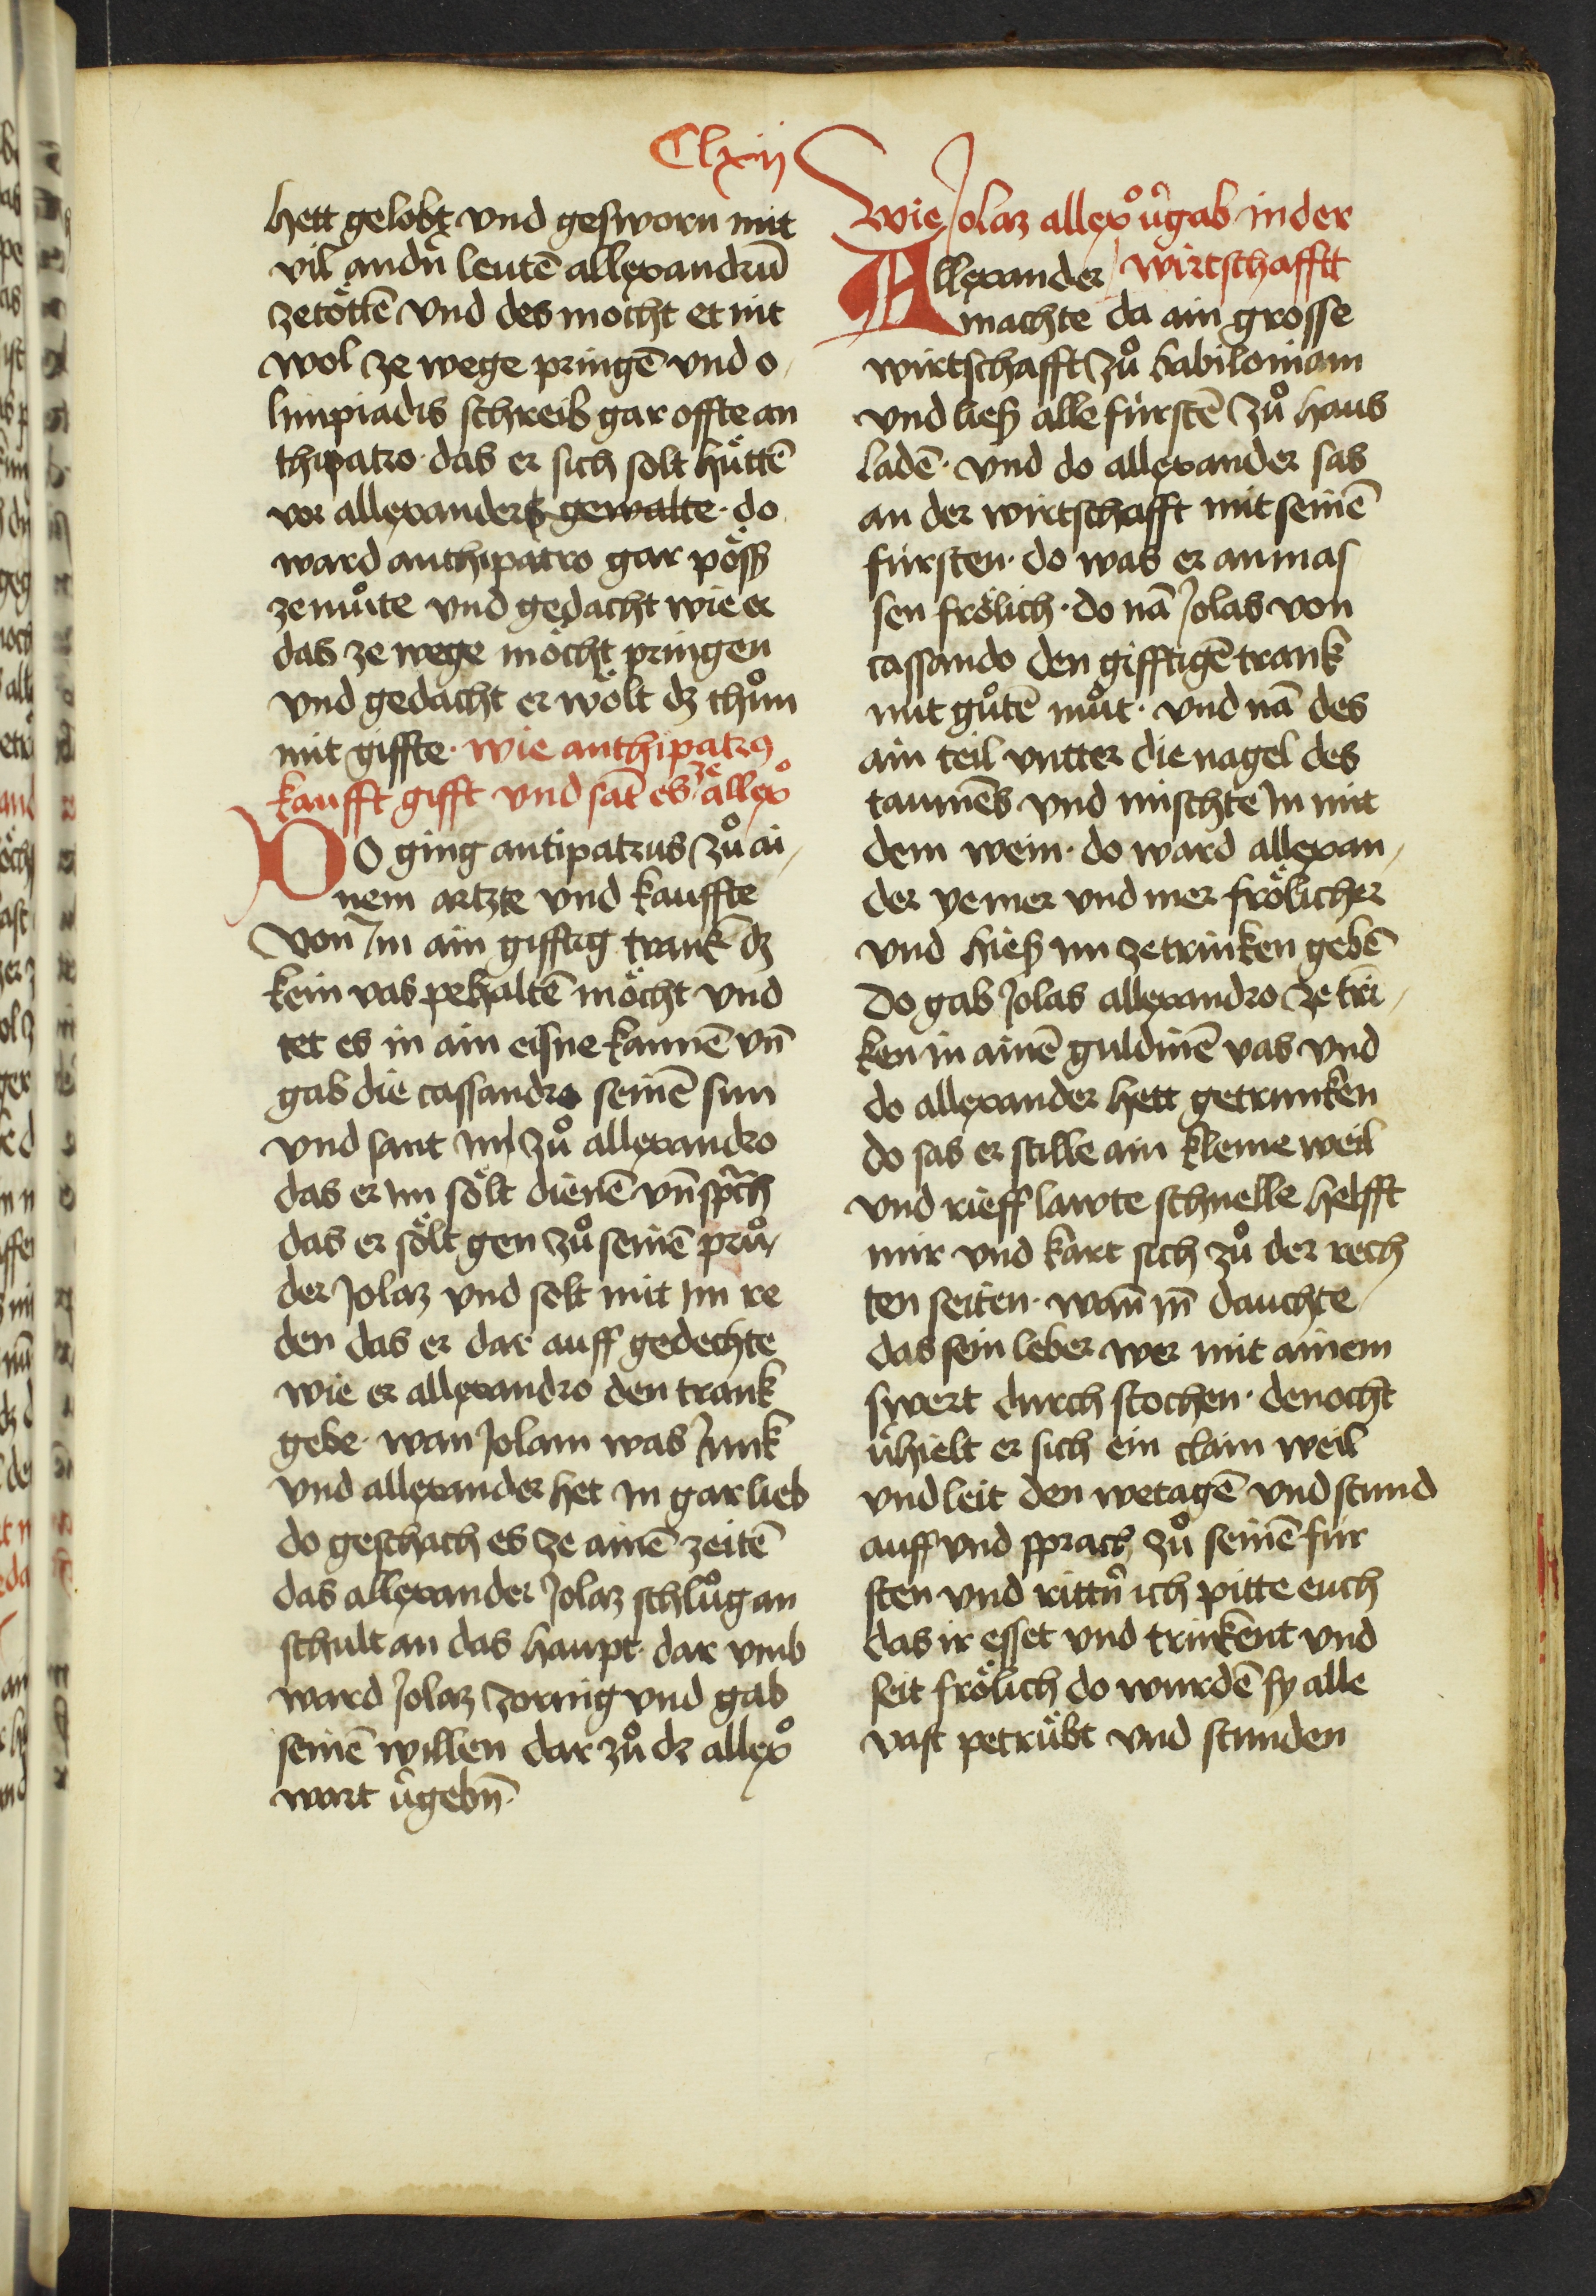 Clxij
hett gelobt vnd gesworn mit
vil andn̄ leutē allexandrū
zetöttē vnd des mocht et nit
wol ze wege pringē vnd o
limpiadis schreib gar offte an
thipatro · das er sich solt hüttē
vor allexanders gewalte · do
ward anthipatro gar pösß
ze muͦte vnd gedacht wie er
das ze wege möcht pringen
vnd gedacht er wölt dz thuͦn
mit giffte · wie anthipatrꝯ
kaufft gifft vnd sāt es ze allexͦ
DO ging antipatrus zuͦ ai
nem artzte vnd kauffte
von Im ain gifftig trank dz
kein vas pehaltē möcht vnd
tet es in ain eisne kannē vn̄
gab die cassandro seinē sun
vnd sant im zuͦ allexandro
das er im sölt dienē vn̄ sprach
das er sölt gen zuͦ seinē pruͦ
der Jolaz vnd solt mit Im re
den das er dar auff gedechte
wie er allexandro den trank
gebe · wan Jolam was Junk
vnd allexander het In gar lieb
do geschach es ze ainē zeitē
das allexander Jolaz schluͦg an
schult an das haupt · dar vmb
ward Jolaz zornig vnd gab
seinē willen dar zuͦ dz allexͦ
wart v̄gebn̄ ·
Wie Jolaz allexͦ v̄gab in der
wirtschafftt
Allexander
machte da ain grosse
wirtschafft zuͦ babiloniam
vnd ließ alle fürstē zuͦ haus
ladē · vnd do allexander sas
an der wirtschafft mit seinē
fürsten · do was er anmas
sen frölich · do nā Jolas von
cassando den gifftigē trank
mit guͦtē muͦt · vnd nā des
ain teil vntter die nagel des
taumēs vnd mischte In mit
dem wein · do ward allexan
der ye mer vnd mer frölicher
vnd hieß im ze trinken gebē
Do gab Jolas allexandro ze trī
ken in ainē guldinē vas vnd
do allexander hett getrunken
do sas er stille ain kleine weil
vnd rieff lawte schnelle helfft
mir vnd kart sich zuͦ der rech
ten seiten · wan̄ in̄ dauchte
das sein leber wer mit ainem
swert durch stochen · denocht
v̄hielt er sich ein clain weil
vnd leit den wetagē vnd stund
auff vnd sprach zuͦ seinē für
sten vnd rittn̄ ich pitte euch
das ir esset vnd trinkent vnd
seit frölich do wurdē sy alle
vast petrübt vnd stunden